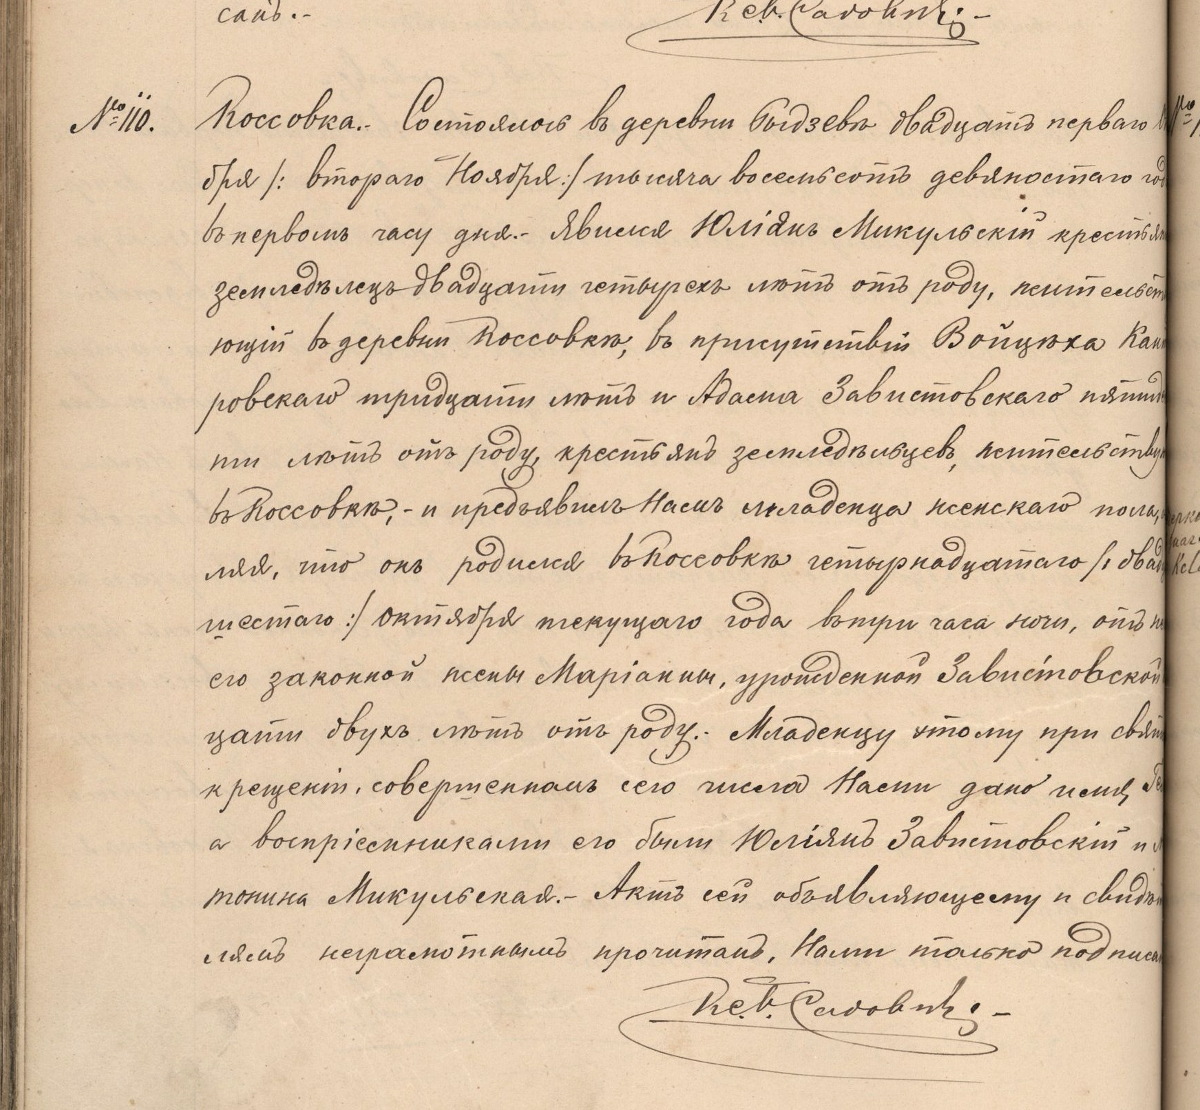 санъ.-
Кс. В. Садовскій:-
№ 110.
Коссовка.- Состоялось въ деревни Быдзевѣ двадцать перваго
бря /: втораго Ноября :/ тысяча восемьсотъ девяностаго го
въ первомъ часу дня.- Явился Юліянъ Микульскій крестьян
земледѣлецъ двадцати четырехъ лѣтъ отъ роду, жительст
ющій въ деревни Коссовкѣ, въ присутствіи Войцѣха
ровскаго тридцати лѣтъ и Адама Завистовскаго пяти
ти лѣтъ отъ роду, крестьянъ земледѣльцевъ, жительству
въ Коссовкѣ,- и предъявилъ Намъ младенца женскаго пола,
ляя, что онъ родился въ Коссовкѣ четырнадцатаго /: два
шестаго :/ октября текущаго года въ три часа ночи, отъ
его законной жены Маріанны, урожденной Завистовской
цати двухъ лѣтъ отъ роду.- Младенцу этому при свят
крещеніи, совершенномъ сего числа Нами дано имя,
а воспріемниками его были Юліянъ Завистовскій и
тонина Микульская.- Актъ сей объявляющему и свидѣт
лямъ неграмотнымъ прочитанъ, Нами только подписа
Кс. В. Садовскій:-